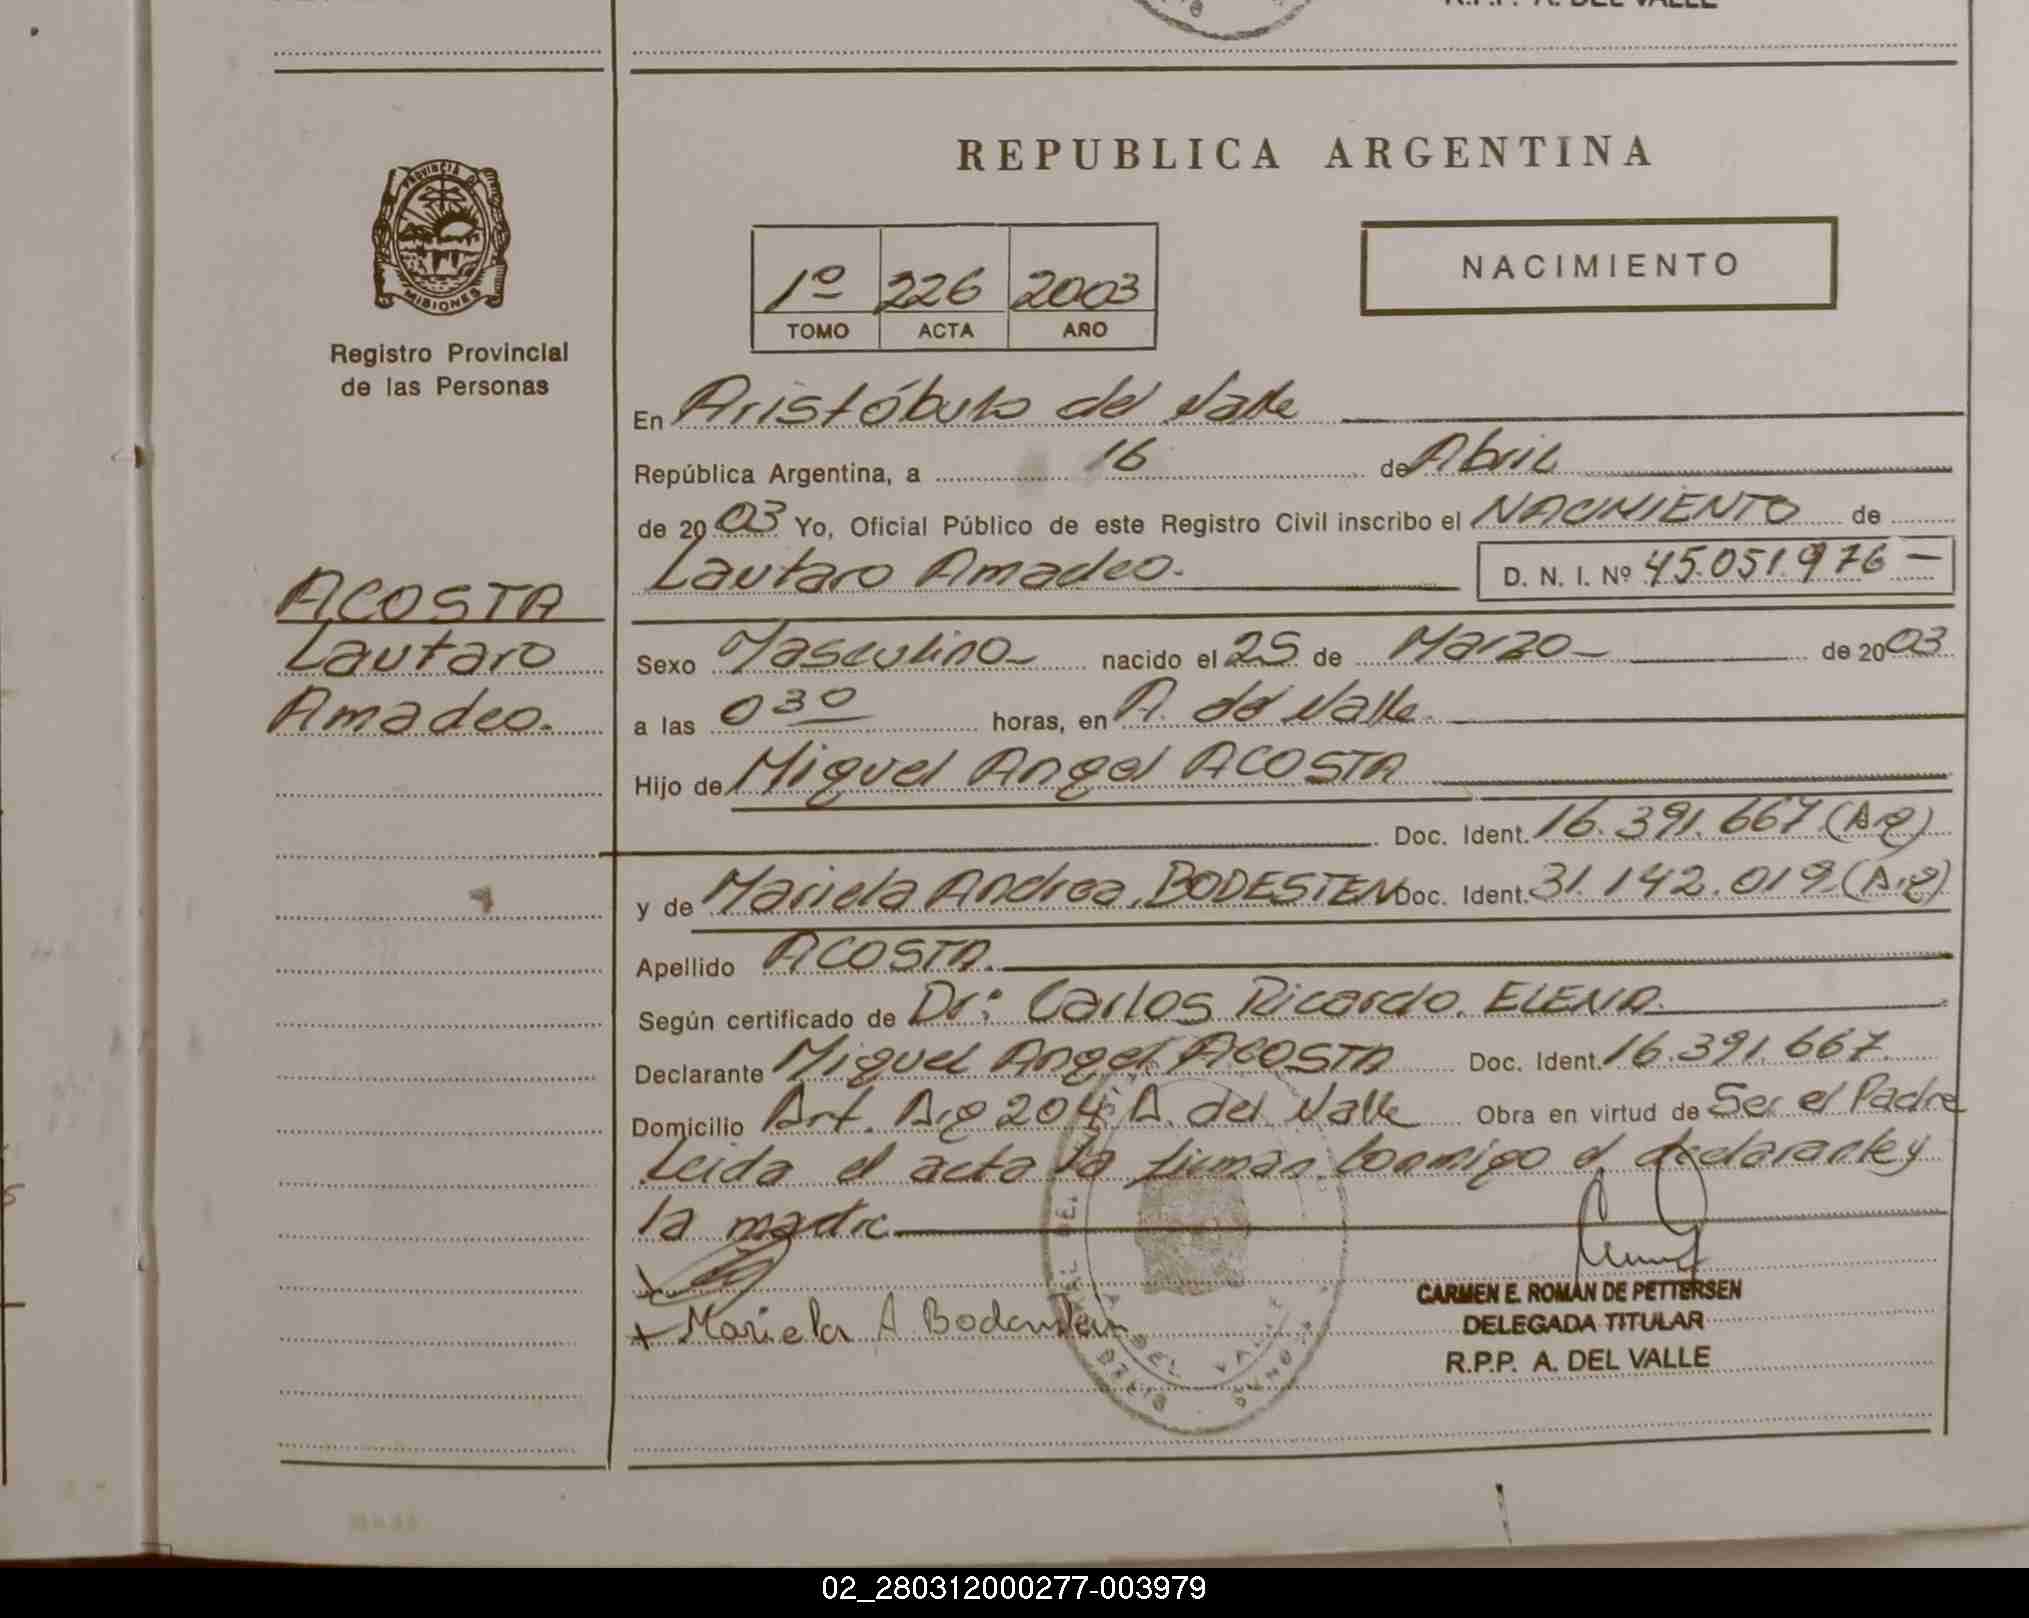 R.P.P. A. DEL VALLE
PROVINCIA DE
MISIONES
Registro Provincial
de las Personas
ACOSTA
Lautaro
Amadeo.
REPUBLICA ARGENTINA
1º 226 2003
TOMO ACTA AÑO
NACIMIENTO
En Aristóbulo del Valle
República Argentina, a 16 de Abril
de 2003 Yo, Oficial Público de este Registro Civil inscribo el NACIMIENTO de
Lautaro Amadeo. D. N. I. Nº 45.051.976 —
Sexo Masculino nacido el 25 de Marzo de 2003
a las 030 horas, en A. del Valle.
Hijo de Miguel Angel ACOSTA
Doc. Ident. 16.391.667 (Arg)
y de Mariela Andrea BODESTEN Doc. Ident. 31.142.019 (Arg)
Apellido ACOSTA.
Según certificado de Dr: Carlos Ricardo. ELENA.
Declarante Miguel Angel ACOSTA Doc. Ident. 16.391.667.
Domicilio Art. Arg 204 A. del Valle Obra en virtud de Ser el Padre
Leida el acta la firman conmigo el declarante y
la madre
+ Mariela A Bodenstein
CARMEN E. ROMAN DE PETTERSEN
DELEGADA TITULAR
R.P.P. A. DEL VALLE
02_280312000277-003979